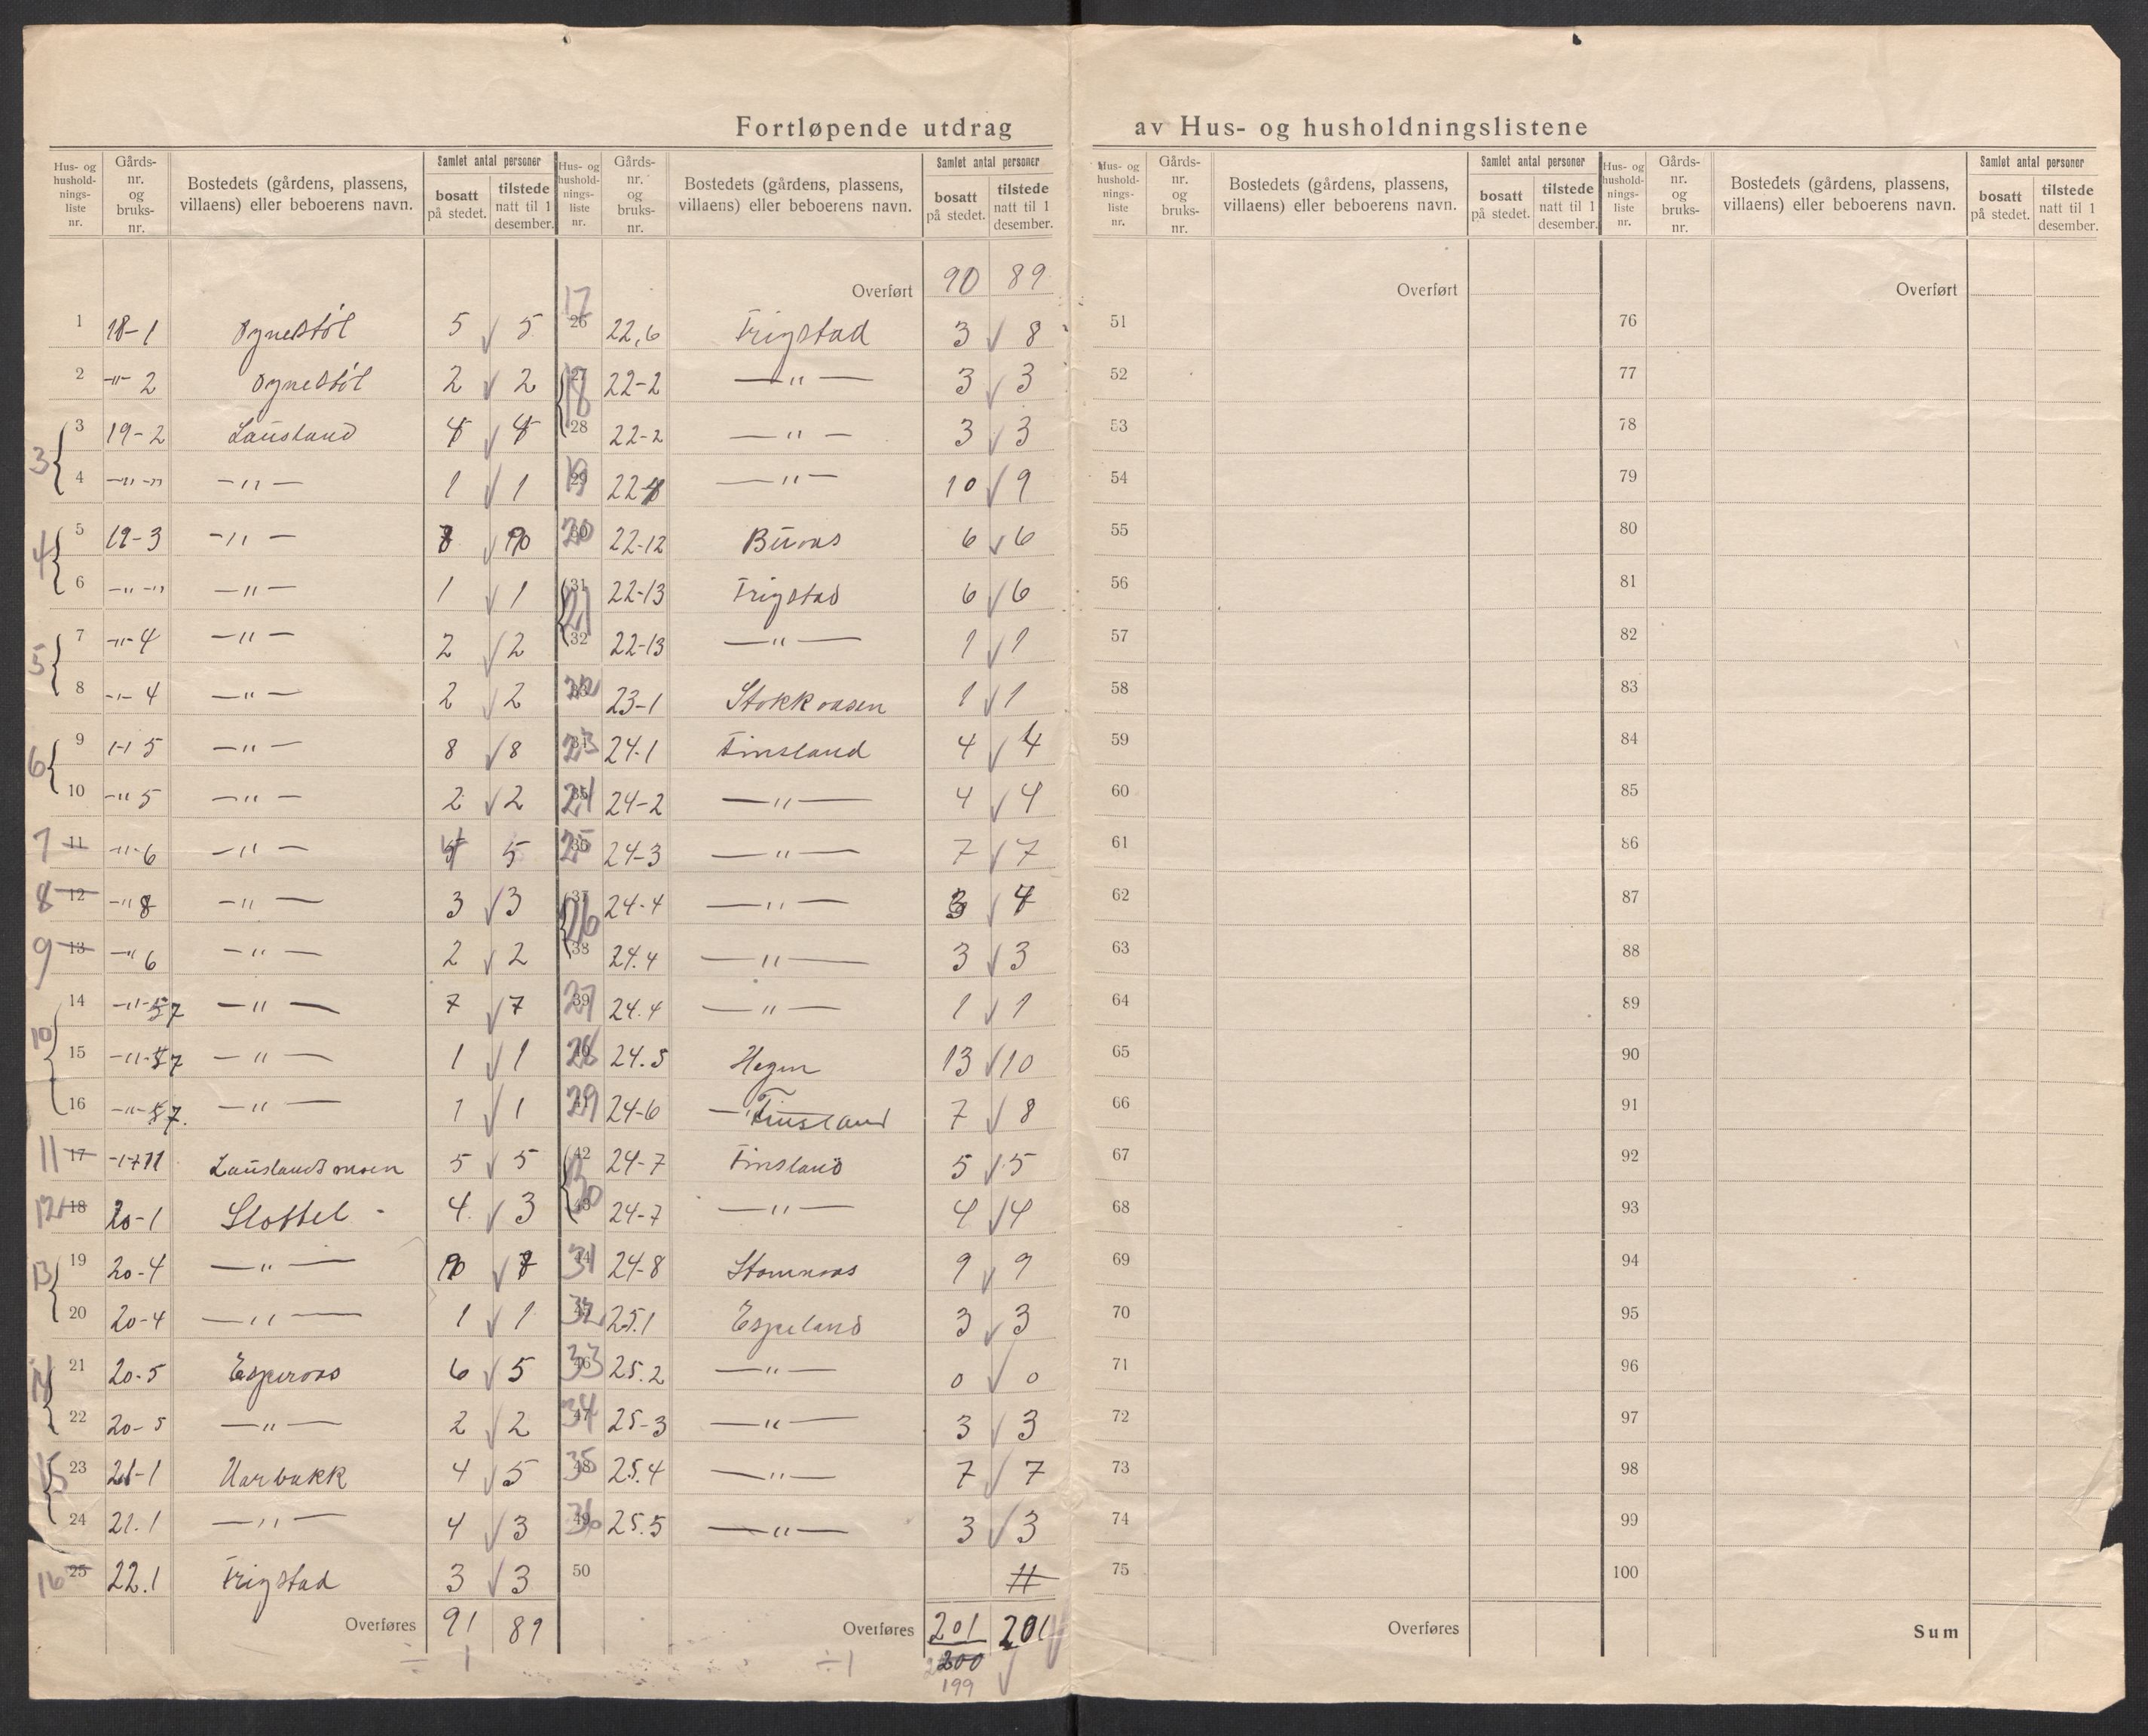 Fortløpende utdrag av Hus- og husholdningslistene
Hus- og hushold-nings-liste nr. | Gårds-nr. og bruks-nr. | Bostedets (gårdens, plassens, villaens) eller beboerens navn. | Samlet antal personer bosatt på stedet. | tilstede natt til 1 desember.
1 18-1 Ognestøl 5 √ 5
2 -"- 2 Ognestøl 2 √ 2
3 19-2 Lausland √
3 4 -"-"- -"- 1 √ 1
5 19-3 -"- √
4 6 -"-"- -"- 1 √ 1
7 -"- 4 -"- 2 √ 2
5 8 -"- 4 -"- 2 √ 2
9 -"- 5 -"- 8 √ 8
6 10 -"- 5 -"- 2 √ 2
7 11 -"- 6 -"- 5
8 12 -"- 8 -"- 3 √ 3
9 13 -"- 6 -"- 2 √ 2
14 -"- 7 -"- 7 √ 7
10 15 -"- 7 -"- 1 √ 1
16 -"- 7. -"- 1 √ 1
11 17 -"- 11 Lauslandsmoen 5 √ 5
12 18 20-1 Slottel - 4 √ 3
13 19 20-4 -"- √
20 20-4 -"- 1 √ 1
14 21 20-5 Esperaas 6 √ 5
22 20-5 -"- 2 √ 2
15 23 21-1 Uarbakk 4 √ 5
24 21.1 -"- 4 √ 3
16 25 22.1 Frigstad 3 √ 3
Overføres 91 89
÷ 1
Hus- og hushold-nings-liste nr. | Gårds-nr. og bruks-nr. | Bostedets (gårdens, plassens, villaens) eller beboerens navn. | Samlet antal personer bosatt på stedet. | tilstede natt til 1 desember.
Overført 90 89
17 26 22,6 Frigstad 3 √ 8
18 27 22-2 -"- 3 √ 3
28 22-2 -"- 3 √ 3
19 29 -"- 10 √ 9
20 30 22-12 Buaas 6 √ 6
21 31 22-13 Frigstad 6 √ 6
32 22-13 -"- 1 √ 1
22 33 23-1 Stokkaasen 1 √ 1
23 34 24.1 Finsland 4 √ 4
24 35 24-2 -"- 4 √ 4
25 36 24-3 -"- 7 √ 7
26 37 24-4 -"- 3 √ 4
38 24.4 -"- 3 √ 3
27 39 24.4 -"- 1 √ 1
28 40 24.5 13 √ 10
29 41 24-6 Finsland 7 √ 8
30 42 24-7 Finsland 5 √ 5
43 24-7 -"- 4 √ 4
31 44 24-8 Stomnaas 9 √ 9
32 45 25.1 Espeland 3 √ 3
33 46 25.2 -"- 0 √ 0
34 47 25-3 -"- 3 √ 3
35 48 25.4 -"- 7 √ 7
36 49 25.5 -"- 3 √ 3
50
Overføres 201 201 √
÷1 200 √
199
Hus- og hushold-nings-liste nr. | Gårds-nr. og bruks-nr. | Bostedets (gårdens, plassens, villaens) eller beboerens navn. | Samlet antal personer bosatt på stedet. | tilstede natt til 1 desember.
Overført
51
52
53
54
55
56
57
58
59
60
61
62
63
64
65
66
67
68
69
70
71
72
73
74
75
Overføres
Hus- og hushold-nings-liste nr. | Gårds-nr. og bruks-nr. | Bostedets (gårdens, plassens, villaens) eller beboerens navn. | Samlet antal personer bosatt på stedet. | tilstede natt til 1 desember.
Overført
76
77
78
79
80
81
82
83
84
85
86
87
88
89
90
91
92
93
94
95
96
97
98
99
100
Sum